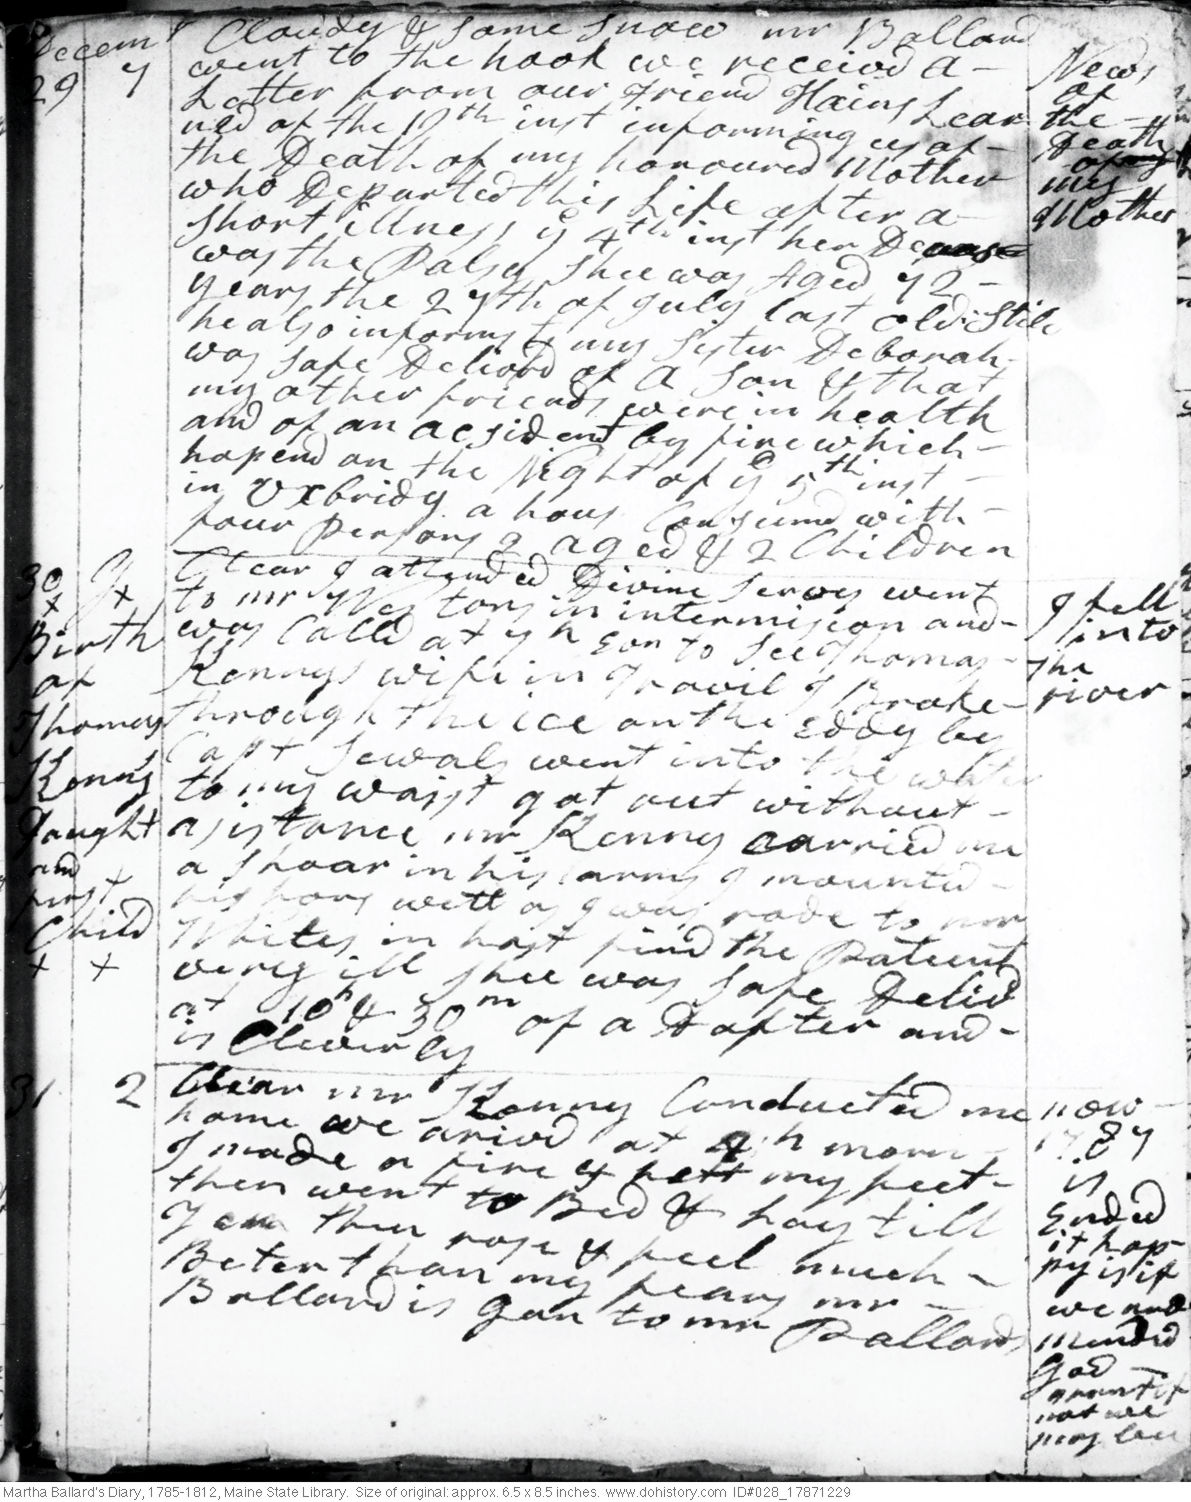 Decemr
29 7
Cloudy & some snow mr Ballard
went to the hook we received a
Letter from our Friend Hains Lear
ned of the 17th inst informing us of
the Death of my honoured Mother
who Departed this Life after a
short illness ye 4th inst her Decease
was the Palsy shee was Aged 72
years the 27th of july last old Stile
he also informs my sister Deborah
was safe Delivrd of a son & that
my other friends were in health
and of an acsident by fire which
hapend on the Night of ye 5th inst
in Uxbridg a hous Consumd with
four persons 2 aged & 2 Children
News
of
the
Death
of my
my
Mother
30 G
x x
Birth
of
Thomas
Kenny
Daught
and x
first
Child
x x
Clear I attended Divine servis went
to mr Westons in intermision and
was Calld at 4 h Eon to see Thomas
Kennys wife in Travil I Brake
through the ice on the Eddy by
Capt Sewals went into the water
to my waist got out without
asistance mr Kenny carried me
a shoar in his arms I mounted
his hors wett as I was rode to mr
Whites in hast find the Patient
very ill shee was safe Delivd
at 10 h & 30 m of a Dafter and
is Cleverly
I fell
into
the
river
31 2
Clear mr Kenny Conducted me
home we arivd at 4 h morn
I made a fire & hett my feet
then went to Bed & lay till
7 then rose & feel much
Beter than my fears mr
Ballard is gon to mr Pollards
now
1787
is
Ended
it hap-
py is if
we are
minded
God
grant if
not we
may be
Martha Ballard's Diary, 1785-1812, Maine State Library. Size of original: approx. 6.5 x 8.5 inches. www.dohistory.com ID#028_17871229